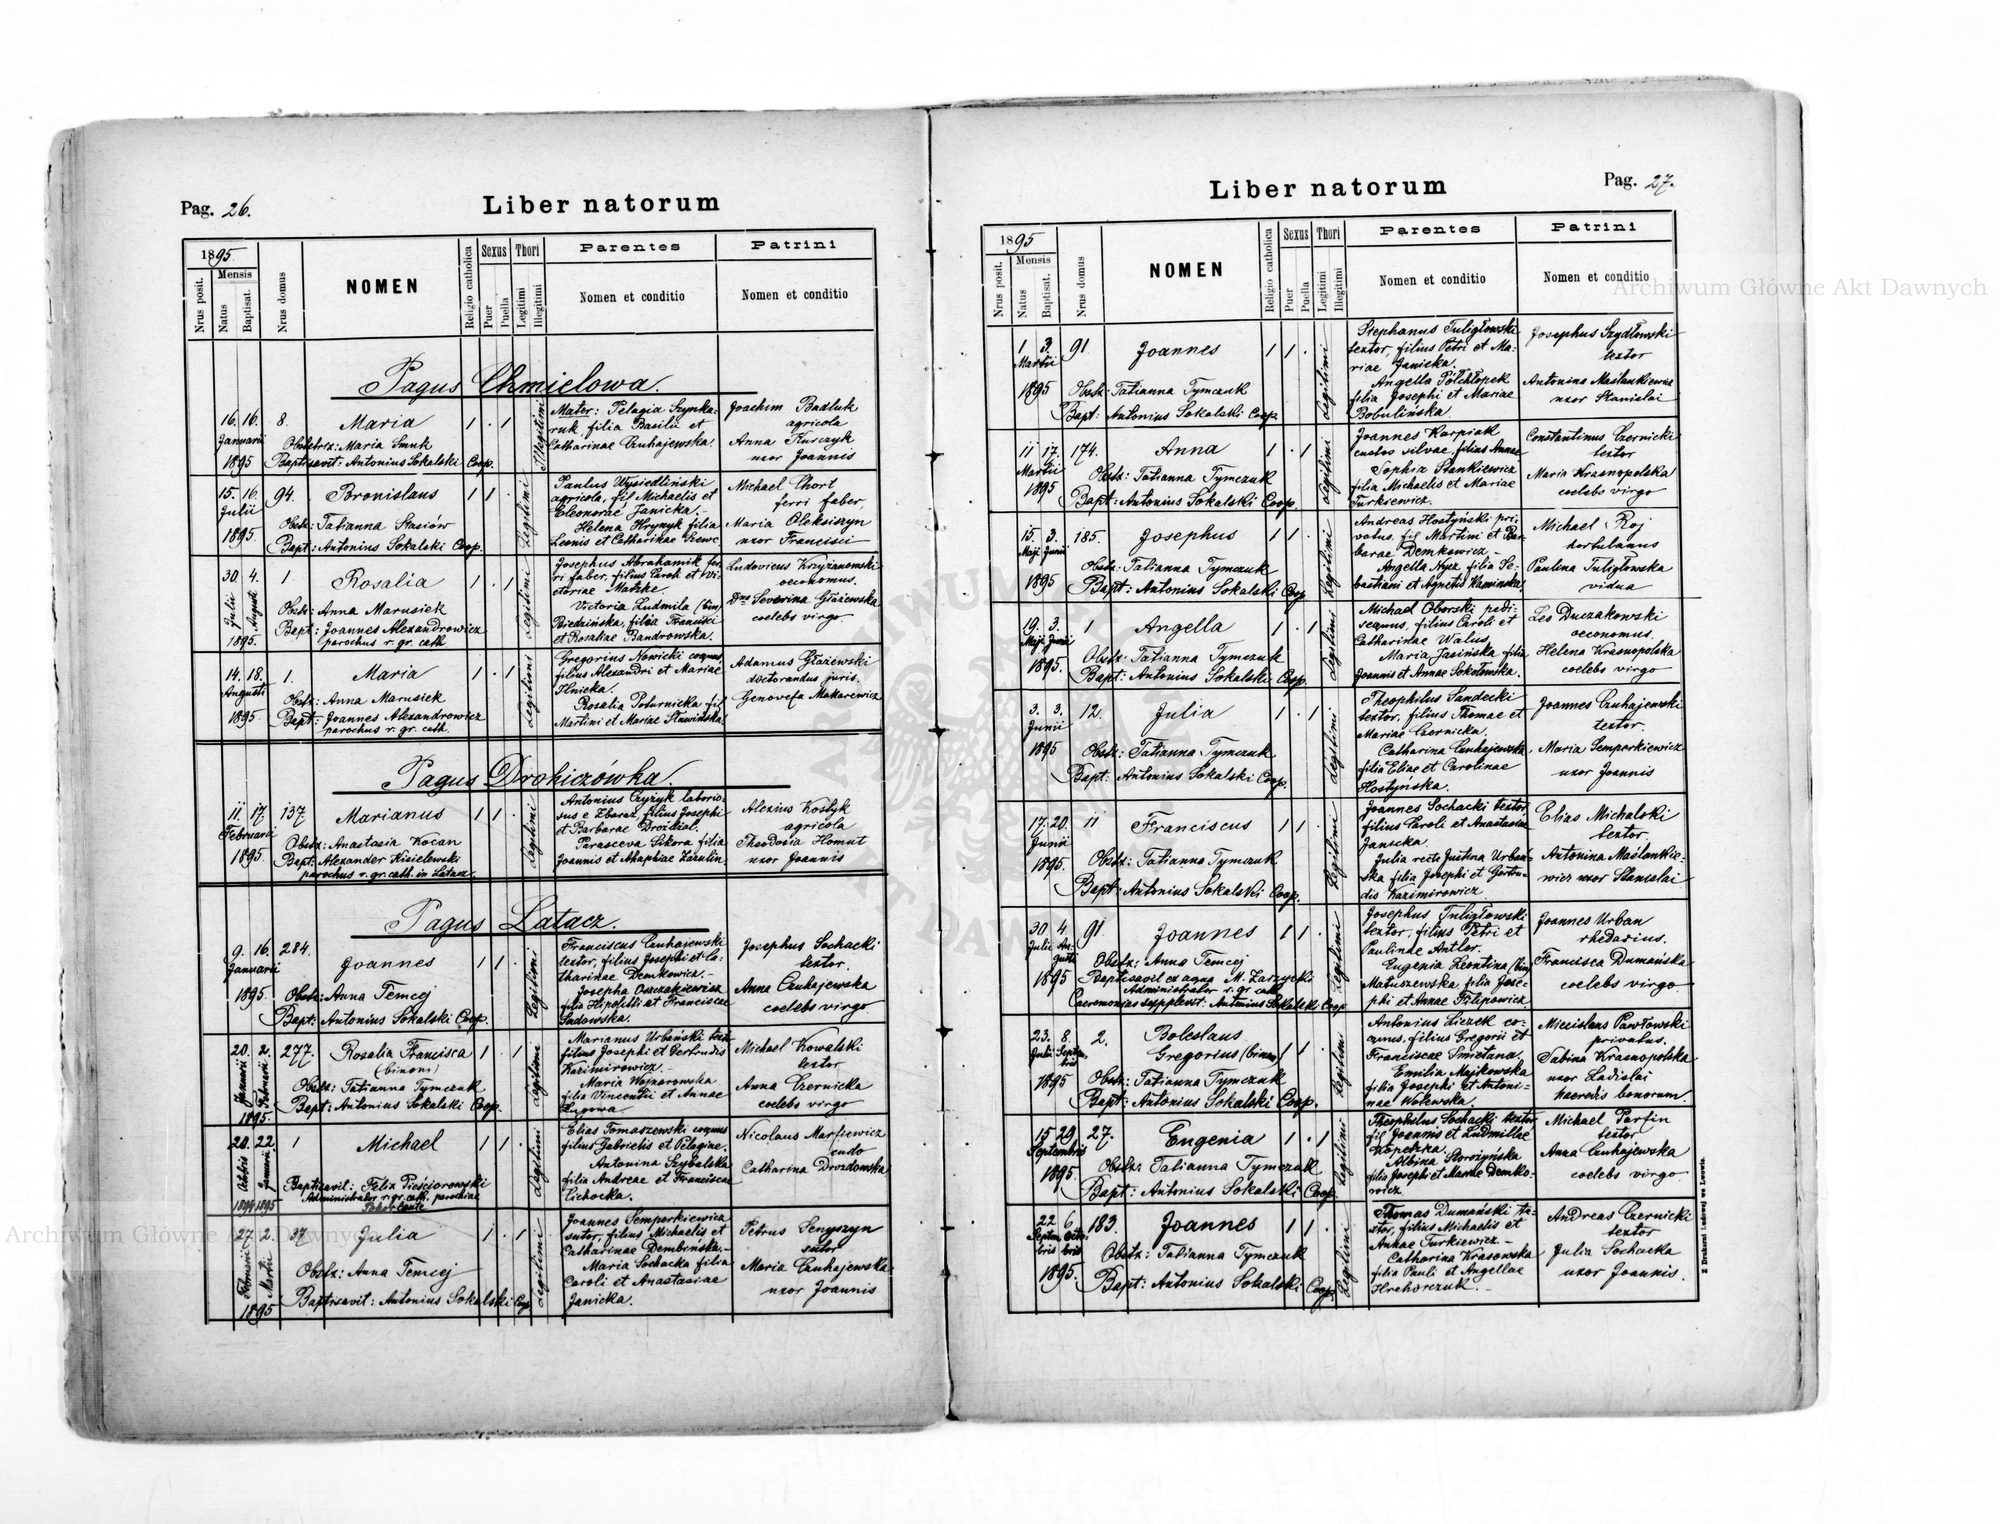 Pag. 26.
Liber natorum
1895
Mensis
Nrus posit.
Natus
Baptisat.
Nrus domus
NOMEN
Religio catholica
Sexus
Puer
Puella
Thori
Legitimi
Illegitimi
Parentes
Nomen et conditio
Patrini
Nomen et conditio
Pagus Chmielowa.
16. 16. 8. Maria 1 . 1
Januarii
1895
Obstetrix: Maria Smuk
Baptisavit: Antonius Sokalski Coop.
Illegitimi
Mater: Pelagia Szynka-
ruk filia Basilii et
Catharinae Czuhajewska.
Joachim Badluk
agricola
Anna Kurczyk
uxor Joannis
15. 16. 94. Bronislaus 1 1 .
Julii
1895.
Obstz: Tatianna Stasiów
Bapt: Antonius Sokalski Coop.
Legitimi
Paulus Wysiedliński
agricola, fil Michaelis et
Eleonorae Janicka.-
Helena Hrynyk filia
Leonis et Catharinae Szewc
Michael Chort
ferri faber,
Maria Oleksiszyn
uxor Francisci
30. 4. 1. Rosalia 1 . 1
Julii Augusti
1895.
Obstz: Anna Marusiek
Bapt: Joannes Alexandrowicz
parochus r. gr. cath.
Legitimi
Josephus Abrahamik fer-
ri faber, filius Caroli et Vi-
ctoriae Matzke.
Victoria Ludmila (bin)
Biedzińska, filia Francisci
et Rosaliae Bandrowska.
Ludovicus Krzyżanowski
oeconomus.
Dna Severina Głażewska
coelebs virgo.
14. 18. 1. Maria 1 . 1
Augusti
1895.
Obstz: Anna Marusiek
Bapt: Joannes Alexandrowicz
parochus r. gr. cath.
Legitimi
Gregorius Nowicki coquus
filius Alexandri et Mariae
Ilnicka.
Rosalia Poturnicka fil
Martini et Mariae
Adamus Głażewski
doctorandus juris.
Genovefa Makarewicz
Pagus Drohiczówka.
11. 17. 137. Marianus 1 1 .
Februarii
1895.
Obstz: Anastasia Kocan
Bapt: Alexander Kisielewski
parochus r. gr. cath. in Latacz.
Legitimi
Antonius Czyżyk laborio-
sus e Zbaraż, filius Josephi
et Barbarae Droździal.
Parasceva Sikora filia
Joannis et Ahaphiae Lazulin.
Alexius Kostyk
agricola
Theodosia Homut
uxor Joannis
Pagus Latacz.
9. 16. 284. Joannes 1 1 .
Januarii
1895.
Obstz: Anna Temcej
Bapt: Antonius Sokalski Coop.
Legitimi
Franciscus Czuhajewski
textor, filius Josephi et Ca-
tharinae Demkowicz.-
Josepha Oszczakiewicz
filia Hipoliti et Franciscae
Sadowska.
Josephus Sochacki
textor.
Anna Czuhajewska
coelebs virgo
20. 2. 277. Rosalia Francisca 1 . 1
(binom)
Januarii Februarii
1895.
Obstz: Tatianna Tymczuk
Bapt: Antonius Sokalski Coop.
Legitimi
Marianus Urbański text-
filius Josephi et Gertrudis
Kazimirowicz.
Maria Wojnorowska
filia Vincentii et Annae
Ligowa
Michael Kowalski
textor
Anna Czernicka
coelebs virgo
20. 22 1 Michael 1 1 .
Octobris Januarii
1894 1895
Baptisavit: Felix Pieściorowski
Administrator r. gr. cath. parochiae
Legitimi
Elias Tomaszewski coquus
filius Gabrielis et Pelagiae.
Antonina Szybalska
filia Andreae et Franciscae
Cichocka.
Nicolaus Marfiewicz
cudo
Catharina Drozdowska
27. 2. 37 Julia 1 . 1
Februarii Martii
1895
Obstz: Anna Temcej
Baptisavit: Antonius Sokalski Coop
Legitimi
Joannes Semparkiewicz
sutor, filius Michaelis et
Catharinae Dembińska.-
Maria Sochacka filia
Caroli et Anastasiae
Janicka.
Petrus Senyszyn
sutor
Maria Czuhajewska
uxor Joannis
Pag. 27.
Liber natorum
1895
Mensis
Nrus posit.
Natus
Baptisat.
Nrus domus
NOMEN
Religio catholica
Sexus
Puer
Puella
Thori
Legitimi
Illegitimi
Parentes
Nomen et conditio
Patrini
Nomen et conditio
1 3. 91 Joannes 1 1 .
Martii
1895
Obstz: Tatianna Tymczuk
Bapt: Antonius Sokalski Coop.
Legitimi
Stephanus Tuligłowski
textor, filius Petri et Ma-
riae Janicka.
Angella Półchłopek
filia Josephi et Mariae
Bobulińska
Josephus Szydłowski
textor
Antonina Maślankiewicz
uxor Stanislai
11 17. 174. Anna 1 . 1
Martii
1895
Obstz: Tatianna Tymczuk
Bapt: Antonius Sokalski Coop.
Legitimi
Joannes Karpiak
custos silvae, filius Annae
Sophia Stankiewicz
filia Michaelis et Mariae
Turkiewicz.
Constantinus Czernicki
textor
Maria Krasnopolska
coelebs virgo
15. 3. 185. Josephus 1 1 .
Maji Junii
1895
Obstz: Tatianna Tymczuk
Bapt: Antonius Sokalski Coop
Legitimi
Andreas Hostyński pri-
vatus, fil Martini et Bar-
barae Demkowicz -
Angella Nyz filia Se-
bastiani et Agnetis Kaminska.
Michael Roj
hortulanus
Paulina Tuligłowska
vidua
19. 3. 1 Angella 1 . 1
Maji Junii
1895.
Obstz: Tatianna Tymczuk
Bapt: Antonius Sokalski Coop.
Legitimi
Michael Oborski pedi-
sequus, filius Caroli et
Catharinae Walus,
Maria Jasińska filia
Joannis et Annae Sokołowska.
Leo Duczakowski
oeconomus.
Helena Krasnopolska
coelebs virgo
3. 3. 12. Julia 1 . 1
Junii
1895
Obstz: Tatianna Tymczuk
Bapt: Antonius Sokalski Coop.
Legitimi
Theophilus Sandecki
textor, filius Thomae et
Mariae Czernicka.
Catharina Czuhajewska
filia Eliae et Carolinae
Hostyńska.
Joannes Czuhajewski
textor.
Maria Semparkiewicz
uxor Joannis
17. 20. 11 Franciscus 1 1 .
Junii
1895.
Obstz: Tatianna Tymczuk
Bapt: Antonius Sokalski Coop.
Legitimi
Joannes Sochacki textor,
filius Caroli et Anastasiae
Janicka.
Julia recte Justina Urbań-
ska filia Josephi et Gertru-
dis Kazimirowicz
Elias Michalski
textor
Antonina Maślankie-
wicz uxor Stanislai
30 4. 91. Joannes 1 1 .
Julii Au-
gusti
1895
Obstz: Anna Temcej
Baptisavit ex aqua M. Zarzycki
Administrator r. gr. cath.
Caeremonias supplevit: Antonius Sokalski Coop
Legitimi
Josephus Tuligłowski
textor, filius Petri et
Paulinae Antler.
Eugenia Leontina (bin)
Matuszewska filia Jose-
phi et Annae Filipowicz
Joannes Urban
rhedarius.
Francisca Dumańska
coelebs virgo
23. 8. 2. Boleslaus
Gregorius (binom) 1 1 .
Julii Septem-
bris
1895
Obstz: Tatianna Tymczuk
Bapt: Antonius Sokalski Coop.
Legitimi
Antonius Liczek co-
quus, filius Gregorii et
Franciscae Smietana.
Emilia Majkowska
filia Josephi et Antoni-
nae Wolewska.
Miecislaus Pawłowski
privatus.
Sabina Krasnopolska
uxor Ladislai
haeredis bonorum.
15 29. 27. Eugenia 1 . 1
Septembris
1895.
Obstz: Tatianna Tymczuk
Bapt: Antonius Sokalski Coop.
Legitimi
Theophilus Sochacki textor
fil Joannis et Ludmillae
Kopeczka.
Albina Storożyńska
filia Josephi et Mariae Demko-
wicz
Michael Parfin
textor
Anna Czuhajewska
coelebs virgo
22 6. 183. Joannes 1 1 .
Septem- Octo-
bris bris
1895.
Obstz: Tatianna Tymczuk
Bapt: Antonius Sokalski Coop.
Legitimi
Thomas Dumański te-
xtor, filius Michaelis et
Annae Turkiewicz -
Catharina Krasowska
filia Pauli et Angellae
Hrehorczuk. -
Andreas Czernicki
textor
Julia Sochacka
uxor Joannis.
Z Drukarni Ludowej we Lwowie.
Archiwum Główne Akt Dawnych
Archiwum Główne Akt Dawnych